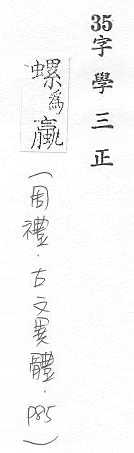 35字學三正
螺爲蠃(周禮.古文異體.P85)